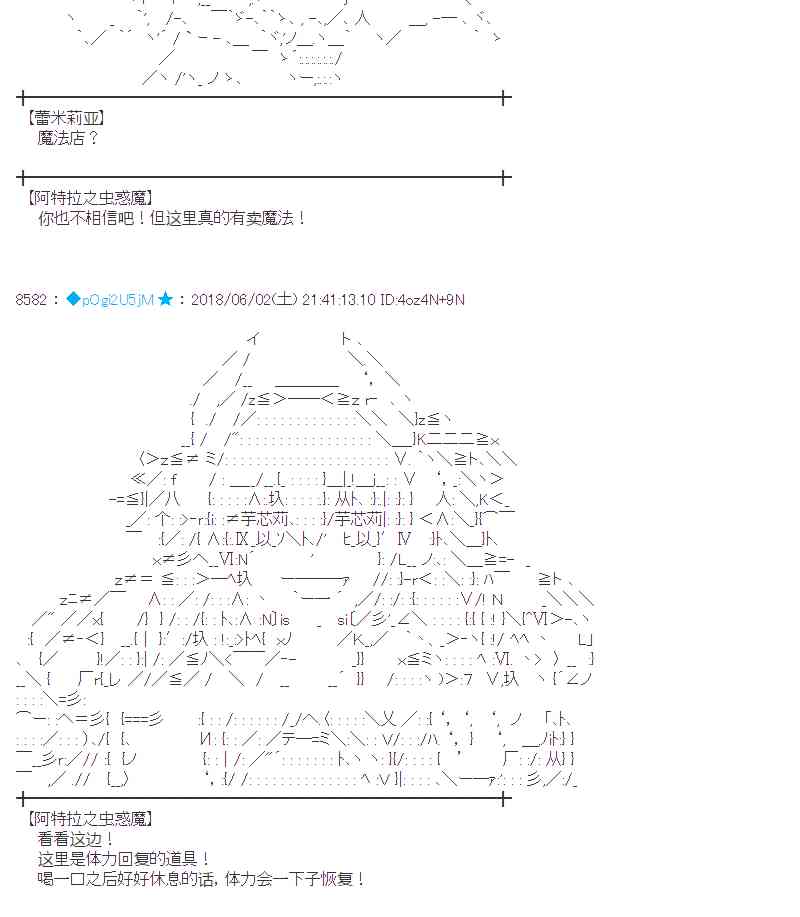 【蕾米莉亚】
魔法店？
【阿特拉之虫惑魔】
你也不相信吧！但这里真的有卖魔法！
8582 ： ◆pOgi2U5jM ★ ： 2018/06/02(土) 21:41:13.10 ID:4oz4N+9N
【阿特拉之虫惑魔】
看看这边！
这里是体力回复的道具！
喝一口之后好好休息的话，体力会一下子恢复！